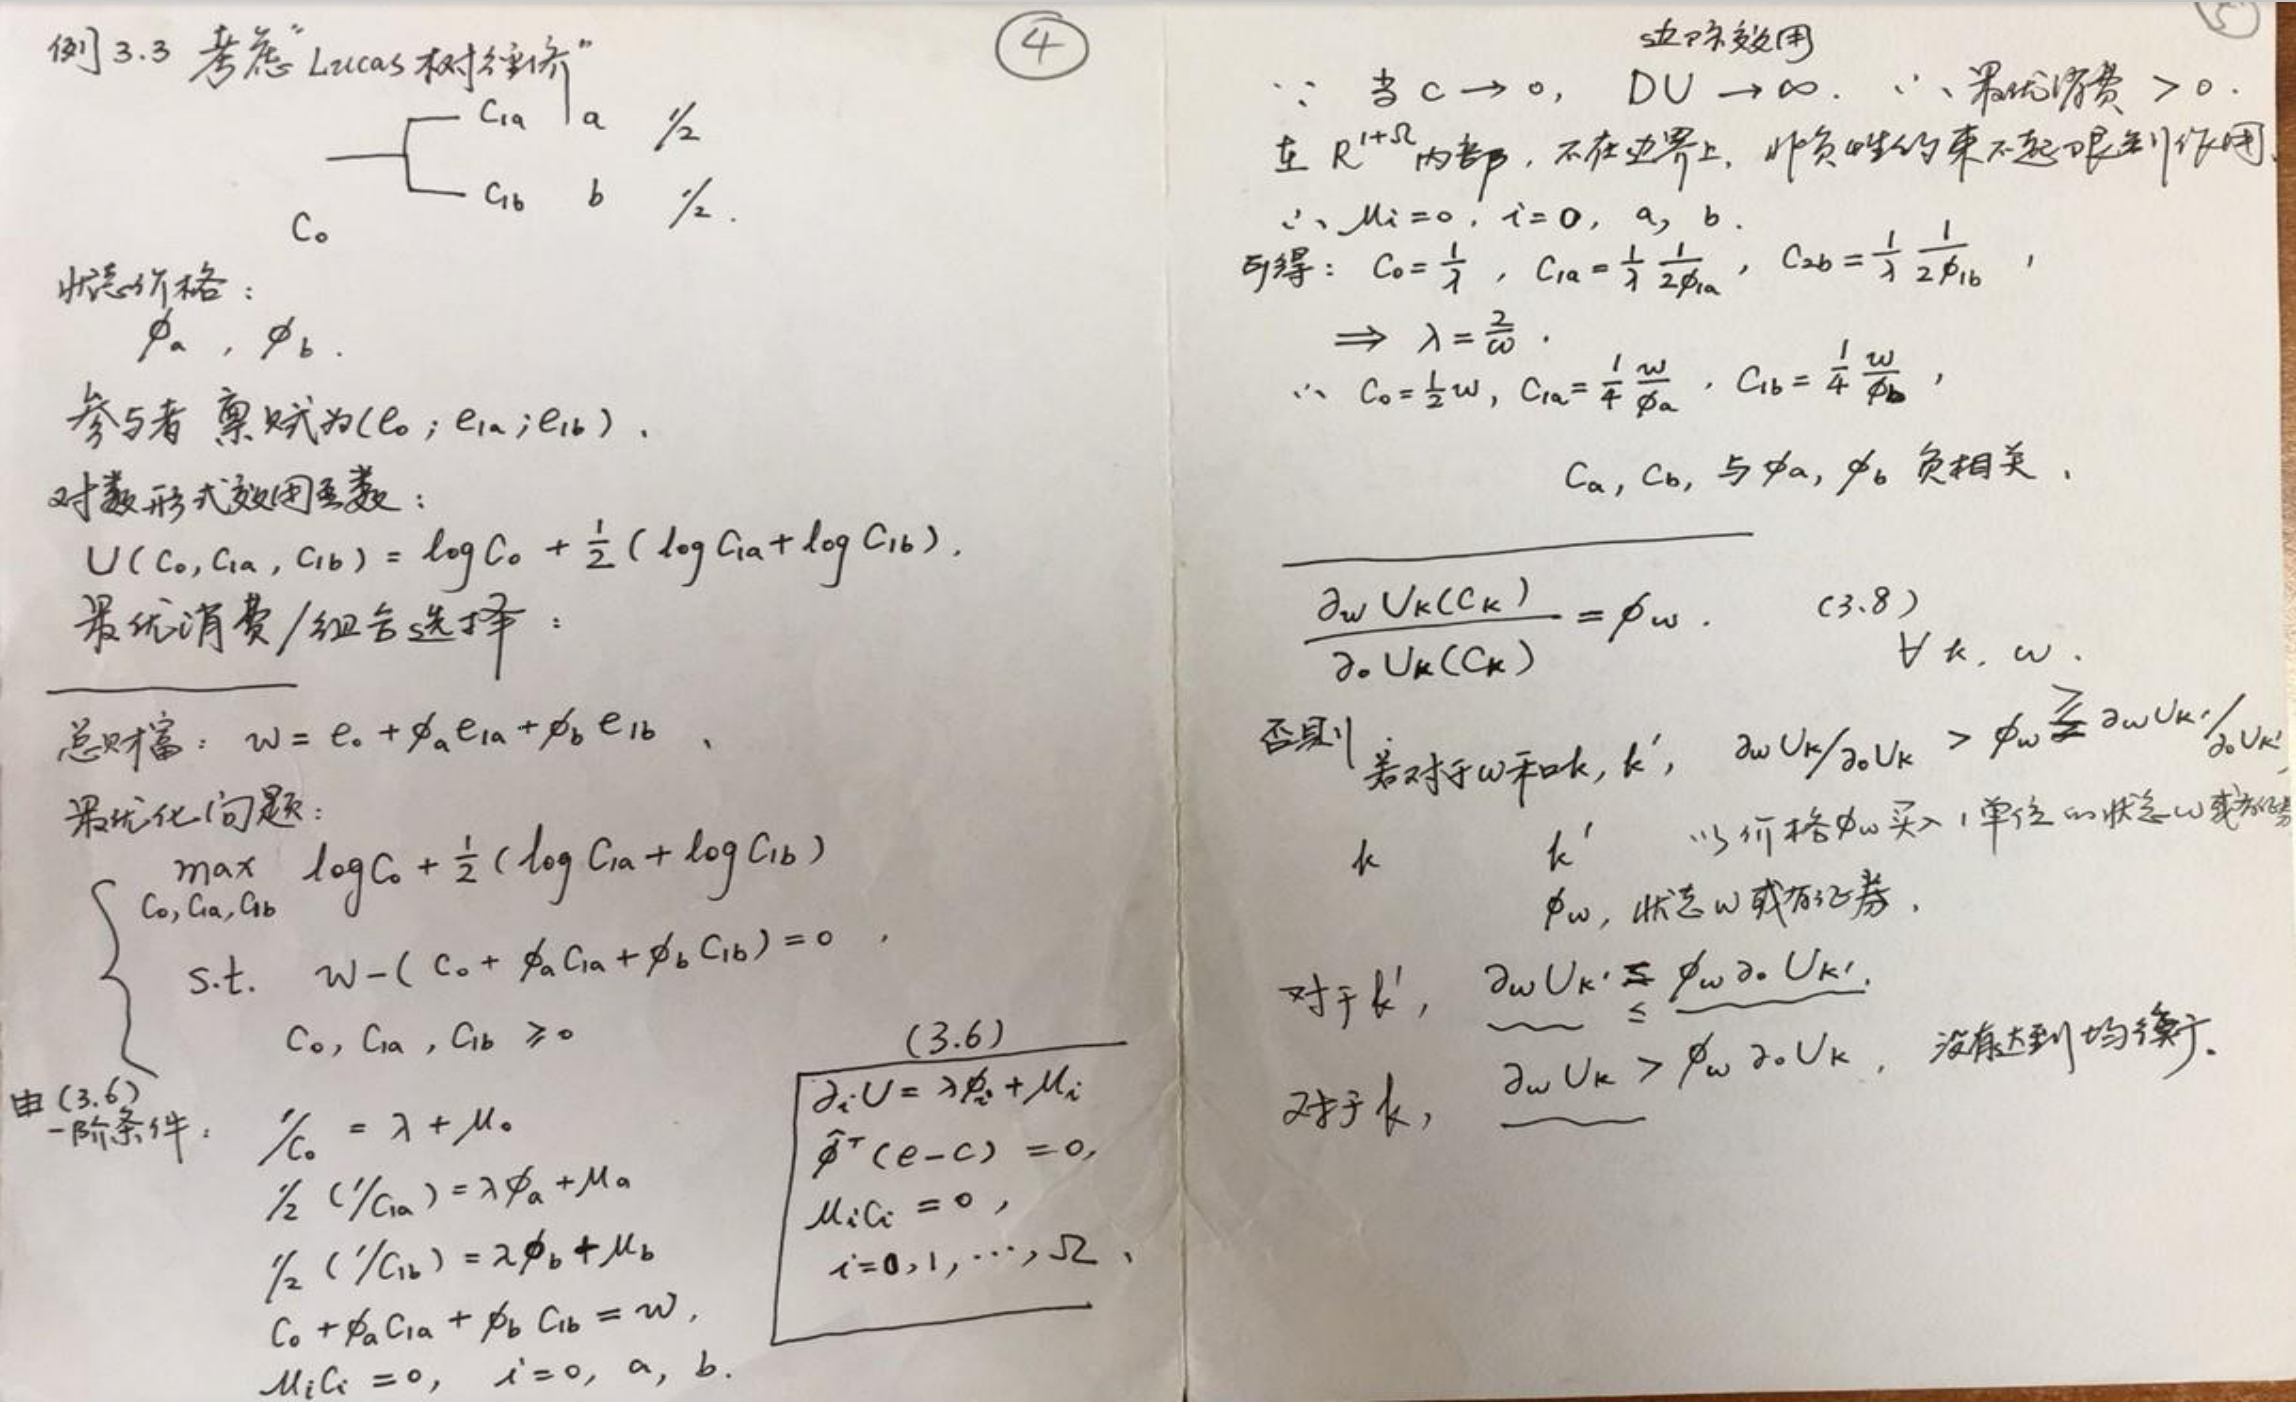 例3.3 考虑“Lucas树经济”
④
C₁ₐ a 1/2
C₁b b 1/2.
C₀
状态价格:
ϕₐ , ϕb .
参与者 禀赋为(e₀ ; e₁ₐ ; e₁b) .
对数形式效用函数:
U(C₀, C₁ₐ, C₁b) = log C₀ + 1/2 ( log C₁ₐ + log C₁b) .
最优消费/组合选择 :
总财富: w = e₀ + ϕₐ e₁ₐ + ϕb e₁b 、
最优化问题:
max log C₀ + 1/2 ( log C₁ₐ + log C₁b )
C₀, C₁ₐ, C₁b
s.t. w - ( C₀ + ϕₐ C₁ₐ + ϕb C₁b ) = 0 ,
C₀, C₁ₐ , C₁b ≥ 0
由(3.6)
一阶条件: 1/C₀ = λ + μ₀
1/2 (1/C₁ₐ) = λϕₐ + μₐ
1/2 (1/C₁b) = λϕb + μb
C₀ + ϕₐ C₁ₐ + ϕb C₁b = w ,
μᵢCᵢ = 0, i = 0, a, b.
(3.6)
∂ᵢU = λϕᵢ + μᵢ
ϕ̂ᵀ (e - c) = 0,
μᵢCᵢ = 0 ,
i = 0, 1, ⋯, Ω 、
边际效用
∵ 当 c → 0, DU → ∞. ∴ 最优消费 > 0.
在 R¹⁺Ω 内部, 不在边界上, 非负性约束不起限制作用.
∴ μᵢ = 0, i = 0, a, b.
可得: C₀ = 1/λ , C₁ₐ = 1/λ 1/2ϕ₁ₐ , C₂b = 1/λ 1/2ϕ₁b ,
⟹ λ = 2/w .
∴ C₀ = 1/2 w, C₁ₐ = 1/4 w/ϕₐ , C₁b = 1/4 w/ϕb ,
Cₐ, Cb, 与 ϕₐ, ϕb 负相关 .
∂ω Uₖ(Cₖ) / ∂₀ Uₖ(Cₖ) = ϕω . (3.8)
∀ k, ω .
否则 若对于ω和k, k′, ∂ωUₖ/∂₀Uₖ > ϕω ≥ ∂ωUₖ′/∂₀Uₖ′,
k k′ 以价格ϕω买入1单位的状态ω或有证券
ϕω, 状态ω或有证券 .
对于k′, ∂ωUₖ′ ≤ ϕω ∂₀Uₖ′.
≤
对于k, ∂ωUₖ > ϕω ∂₀Uₖ , 没有达到均衡.